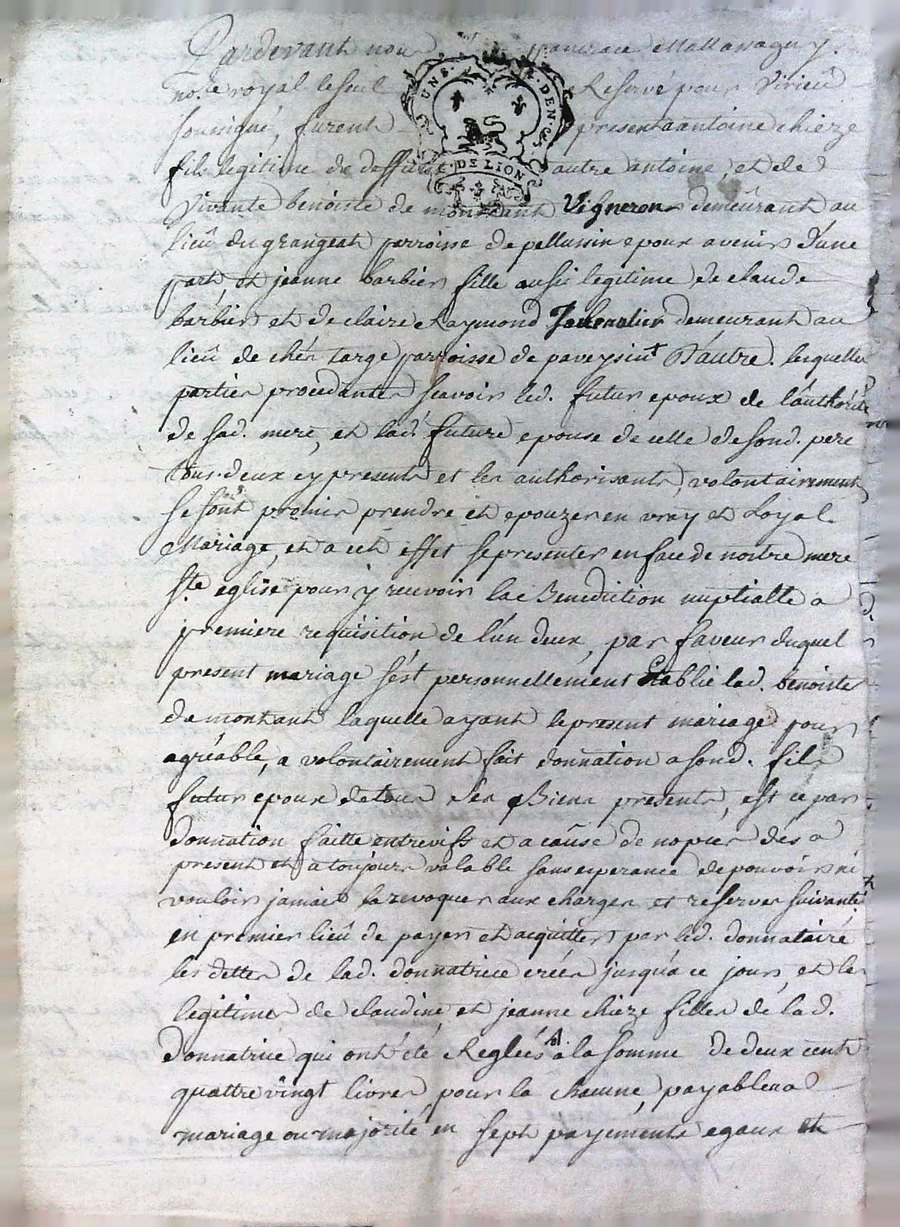 Pardevant nous pancrace Mallassagny
no.re royal le seul Reservé pour Virieû
soussigné, furent presents antoine chieze
fils legitime de deffunt autre antoine, et de
UNS. DEN.
G. DE LION
Vivante benoiste de montant Vigneron demeûrant au
lieû du grangeat parroisse de pellussin epoux avenir d'une
part, et jeanne barbier fille aussi legitime de claude
barbier et de claire Raymond Journalier demeurant au
lieû de chés targe parroisse de paveysint D'autre. lesquelles
parties procedantes scavoir led. futur epoux de l'authorité
de sad. mere, et lad. future epouse de celle de sond. pere
tous deux cy presents et les authorisants, volontairement
se sont promis prendre et epouzer en vray et Loyal
Mariage, et a cet effet se presenter en face de nostre mere
Ste eglise pour y recevoir la Benediction nuptialle a
premiere requisition de l'un deux, par faveur duquel
present mariage s'est personnellement Etablie lad. benoiste
de montant laquelle ayant le present mariage pour
agréable, a volontairement fait donnation a sond. fils
futur epoux de tous ses Biens presents, est ce par
donnation faitte entrevifs et a caûse de nopces dès a
present et a toujours valable sans esperance de pouvoir ni
vouloir jamais la revoquer aux charges et reserves suivantes
en premier lieû de payer et acquitter par led. donnataire
les dettes de lad. donnatrice créés jusqu'a ce jour, et les
legitimes de claudine et jeanne chieze filles de lad.
donnatrice qui ont été Reglées a la somme de deux cent
quattre vingt livres pour la chacune, payables a
mariage ou majorité en sept payements egaux et